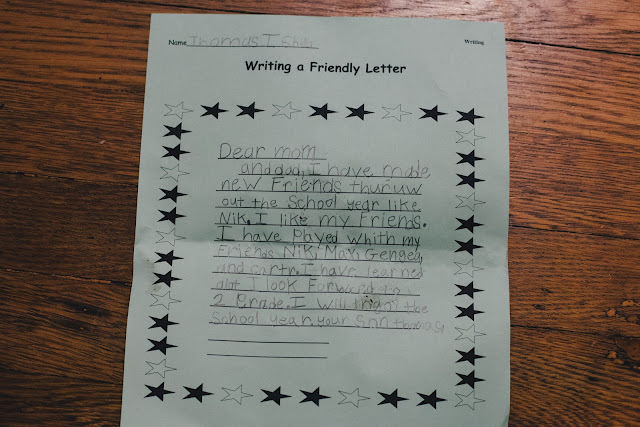 Name Thomas I
Writing
Writing a Friendly Letter
Dear mom
and dad, I have made
new Friends thuruw
out the School year like
Nik. I like my Friends.
I have Played whith my
Friends Nik, Max, Gengea,
and cartr. I have learned
alot I look Forward to
2 Grade. I will the
School year. your Snn thomas